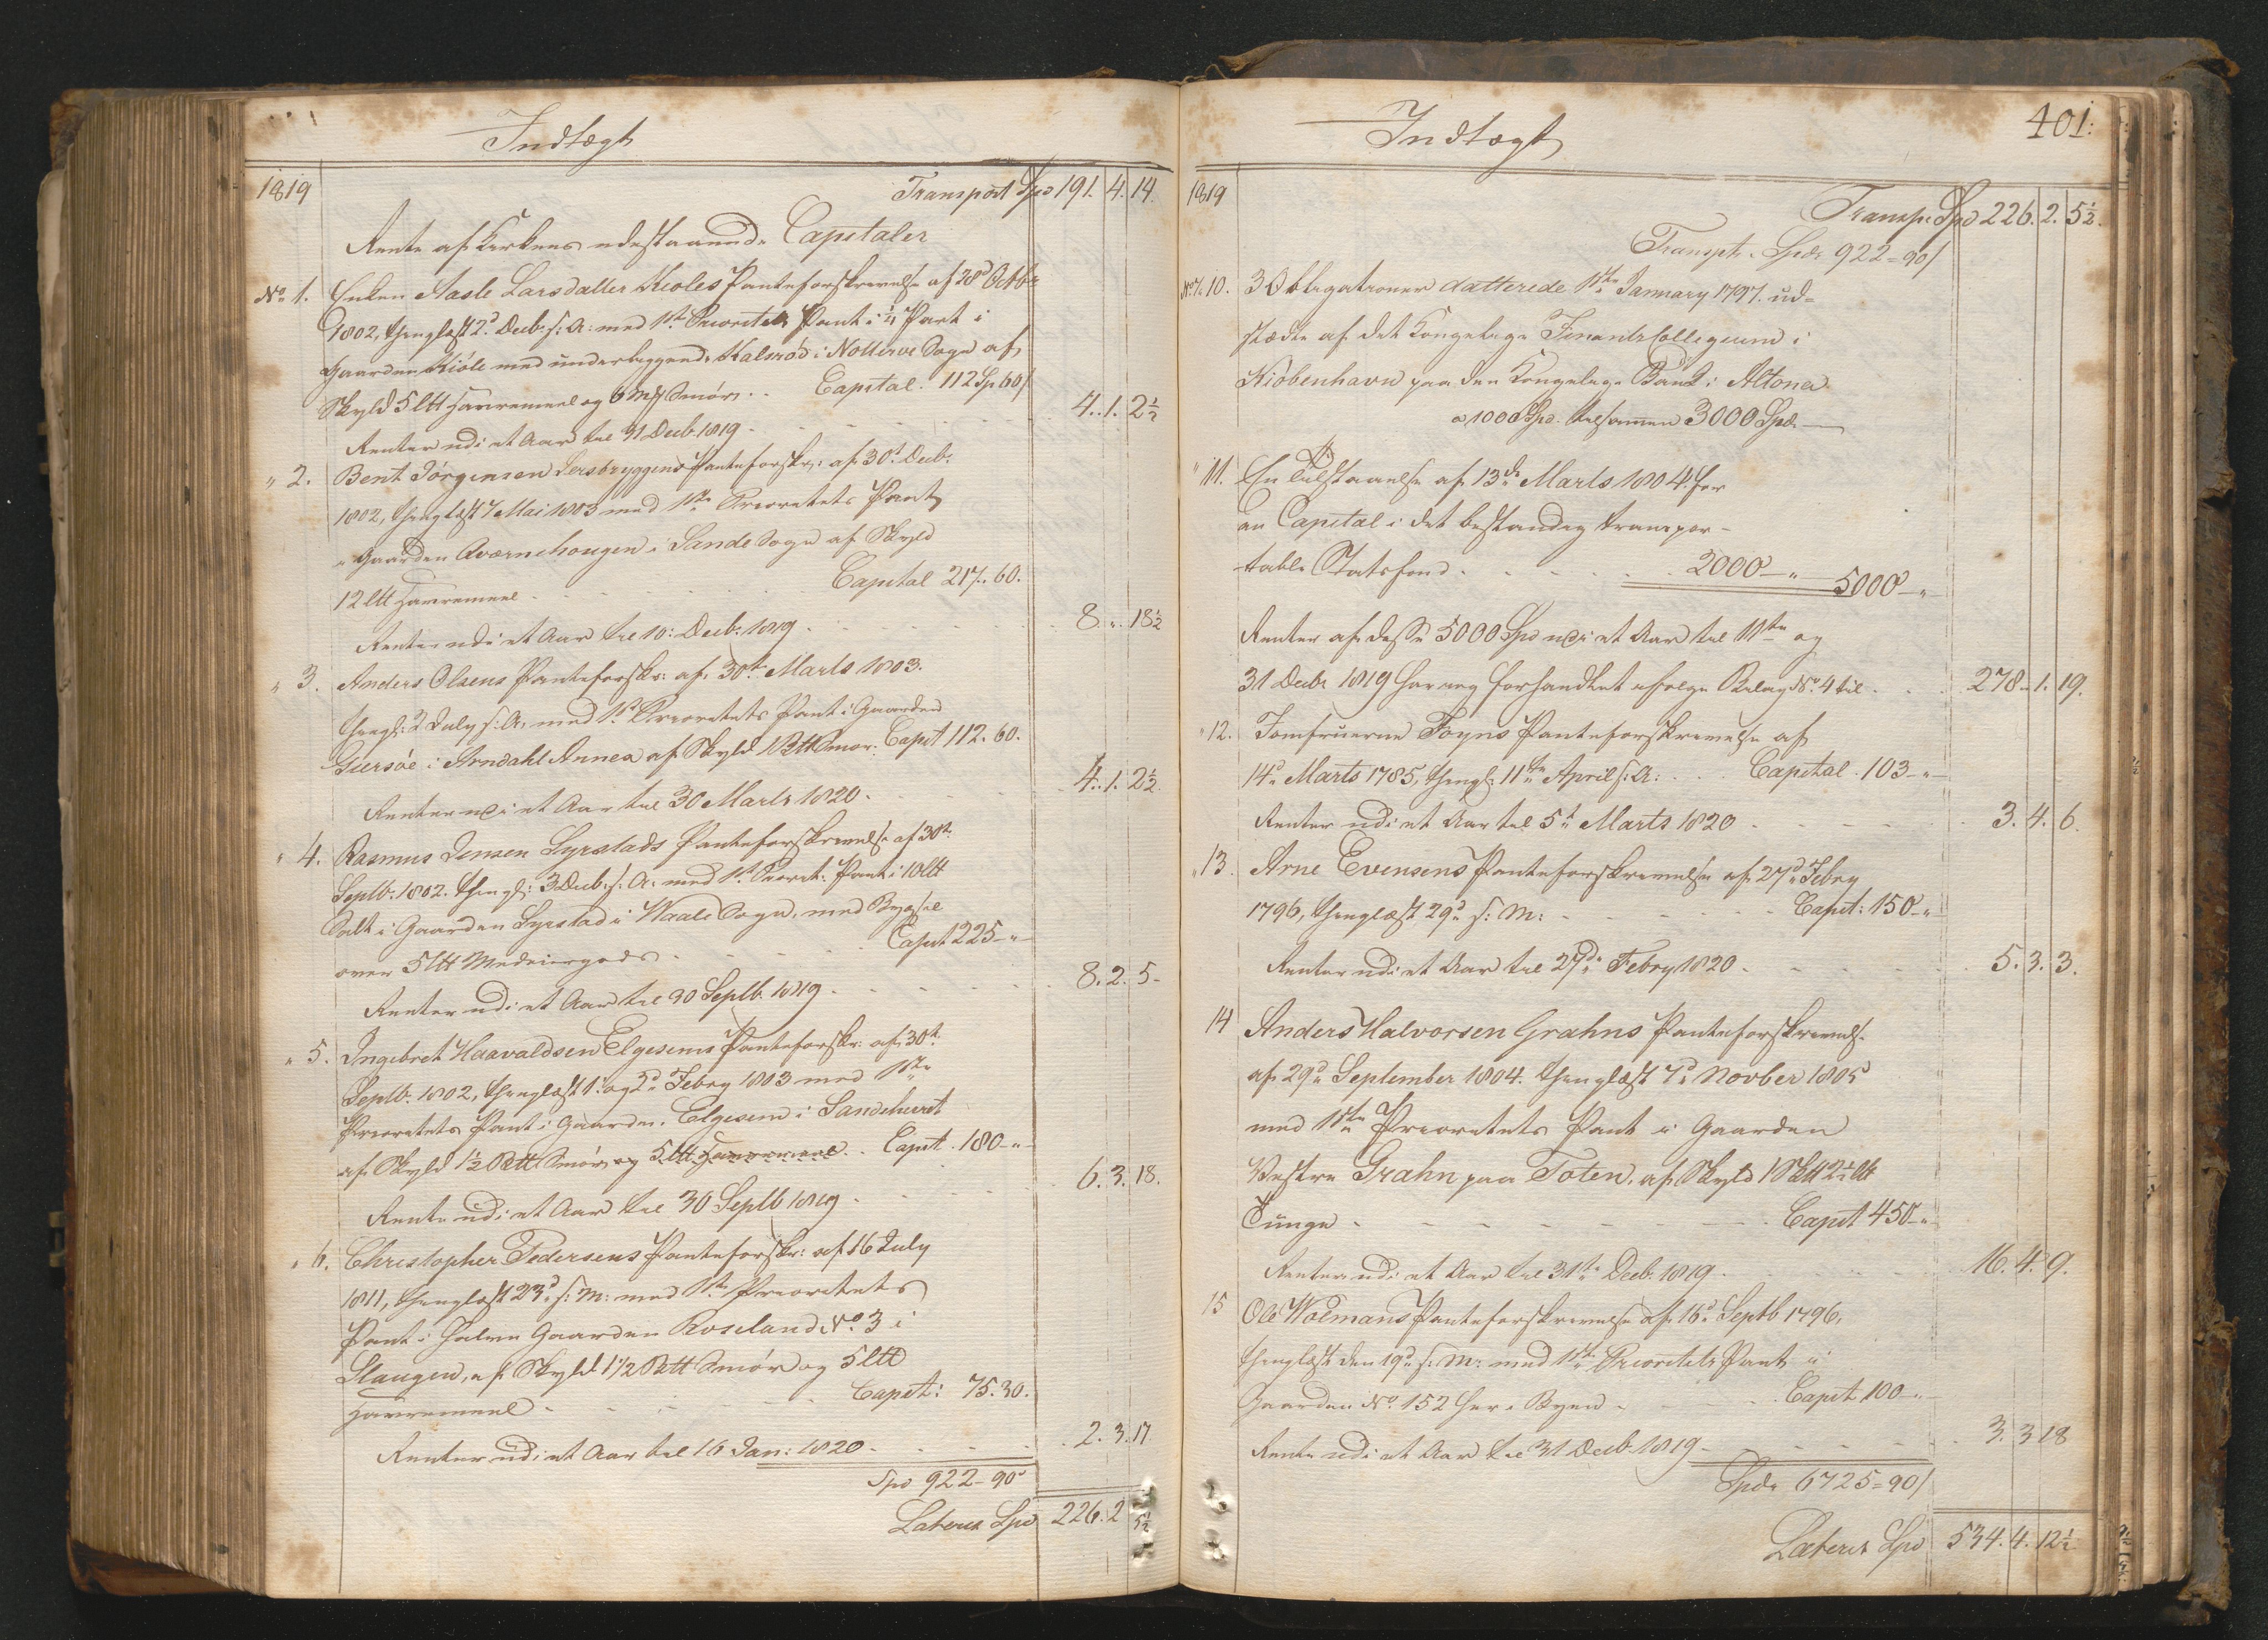 Indtægt
1819 Transport Spd 191. 4. 14.
Rente af Kirkens udestaaende Capitaler
No 1. Enken Aasle Larsdatter Kioles Panteforskrivelse af 28d Octbr
1802, thinglæst 2d Decb. s: A: med 1ste Prioritets Pant i Part i
Gaarden Kiöle med underliggende Kalsröd i Notterøe Sogn af
Skyld 5 ltt Havremeel og 6 mk Smör. . Capital. 112 Sp 60/
Renter udi et Aar til 31 Decb. 1819 . . . 4. 1. 2½
" 2. Bent Jörgensen Lersbryggens Panteforskr: af 30t Decbr.
1802, thinglæst 7 Mai 1803 med 1ste Prioritets Pant
i Gaarden Qværnehougen i Sande Sogn af Skyld
12 ltt Havremeel . . . Capital 217. 60.
Renter udi et Aar til 10: Decbr. 1819 . . . 8 " 18½
" 3. Anders Olsens Panteforskr: af 30t Marts 1803.
thingl: 2 July s: A: med 1ste Prioritets Pant i Gaarden
Giersøe i Arndahl Annex af Skyld 1 Btt Smör. Capit 112. 60.
Renter udi et Aar til 30 Marts 1820 . . . 4. 1. 2½
" 4. Rasmus Jensen Lyrstads Panteforskrivelse af 30t
Septb. 1802. thingl: 3 Decb. s: A: med 1ste Priorit: Pant i 10 ltt
Salt i Gaarden Lyrstad i Waale Sogn, med Bygsel
over 5 ltt Medeiergods . . . Capit 225 - " -
Renter udi et Aar til 30 Septb. 1819 . . . 8. 2. 5 -
" 5. Ingebret Haavaldsen Elgesems Panteforskr: af 30t
Septb. 1802, thinglæst 1t og 2d Febry 1803 med 1ste
Prioritets Pant i Gaarden Elgesem i Sandehæret
af Skyld 1½ Btt Smör og 5 ltt Havremeel . . Capit. 180 - " -
Rente udi et Aar til 30 Septb 1819 . . . 6. 3. 18.
" 6. Christopher Pedersens Panteforskr: af 16 July
1811, thinglæst 23d s: M: med 1ste Prioritets
Pant i halve Gaarden Roseland No 3 i
Slaugen, af Skyld 1 1/2 Btt Smör og 5 ltt
Havremeel . . . Capit: 75. 30.
Renter udi et Aar til 16 Jan: 1820 . . . 2. 3. 17
Spd 922 - 90
Lateris Spd 226. 2 5½
401:
Indtægt
1819 Transp: Spd 226. 2. 5½.
Transpt. Spdr 922 = 90/
No 7 a 10. 3 Obligationer datterede 11te January 1797. ud-
stædte af det Kongelige Finants Collegium i
Kiöbenhavn paa den Kongelige Bank i Altona
a 1000 Spd. tilsammen 3000 Spdr -
" 11. En Tilstaaelse af 13de Marts 1804 for
en Capital i det bestandig transpor-
table Statsfond . . . 2000 - " 5000 - "
Renter af disse 5000 Spd udi et Aar til 11te og
31 Decbr 1819 har jeg forhandlet ifølge Bilag No 4 til . . . 278. 1. 19.
" 12. Jomfruerne Foyns Panteforskrivelse af
14d Marts 1785, thingl: 11te April s: A: . . . Capital. 103 - " -
Renter udi et Aar til 5t Marts 1820 . . . 3. 4. 6.
" 13. Arne Evensens Panteforskrivelse af 27d Febry
1796, thinglæst 29d s: M: . . . Capit: 150 - "
Renter udi et Aar til 27de Febry 1820 . . . 5. 3. 3.
14 Anders Halvorsen Grahns Panteforskrivelse
af 29d September 1804. thinglæst 7d Novber 1805
med 1ste Prioritets Pant i Gaarden
Vestre Grahn paa Toten, af Skyld 1 Sktt
Tunge . . . Capit 450 - "
Renter udi et Aar til 31te Decb. 1819 . . . 16. 4. 9.
15 Ole Wolmans Panteforskrivelse af 16d Septb 1796,
thinglæst den 19d s: M: med 1ste Prioritets Pant i
Gaarden No 152 her i Byen . . . Capit. 100 - " -
Rente udi et Aar til 31 Decb. 1819 . . . 3. 3 18
Spdr 6725 = 90/
Lateris Spd 534. 4. 12½